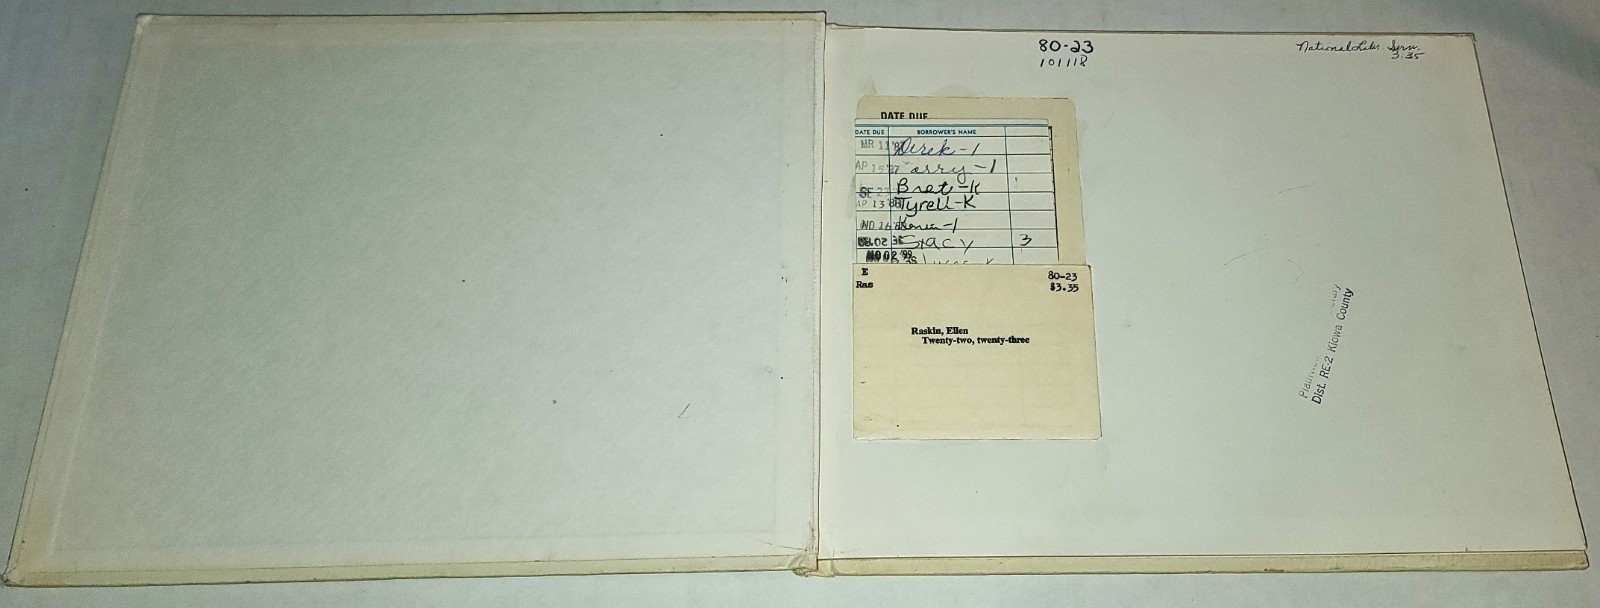 80-23
101118
National Libr. Serv.
3.35
DATE DUE
DATE DUE BORROWER'S NAME
MR 11 '87 Derek-1
AP 15 '87 arry-1
SE 23 Bret-K
AP 13 '88 Tyrell-K
NO 16 '88 -1
02 Stacy 3
NO 02 '99 Lucas-K
E 80-23
Ras $3.35
Raskin, Ellen
Twenty-two, twenty-three
Dist. RE-2 Kiowa County